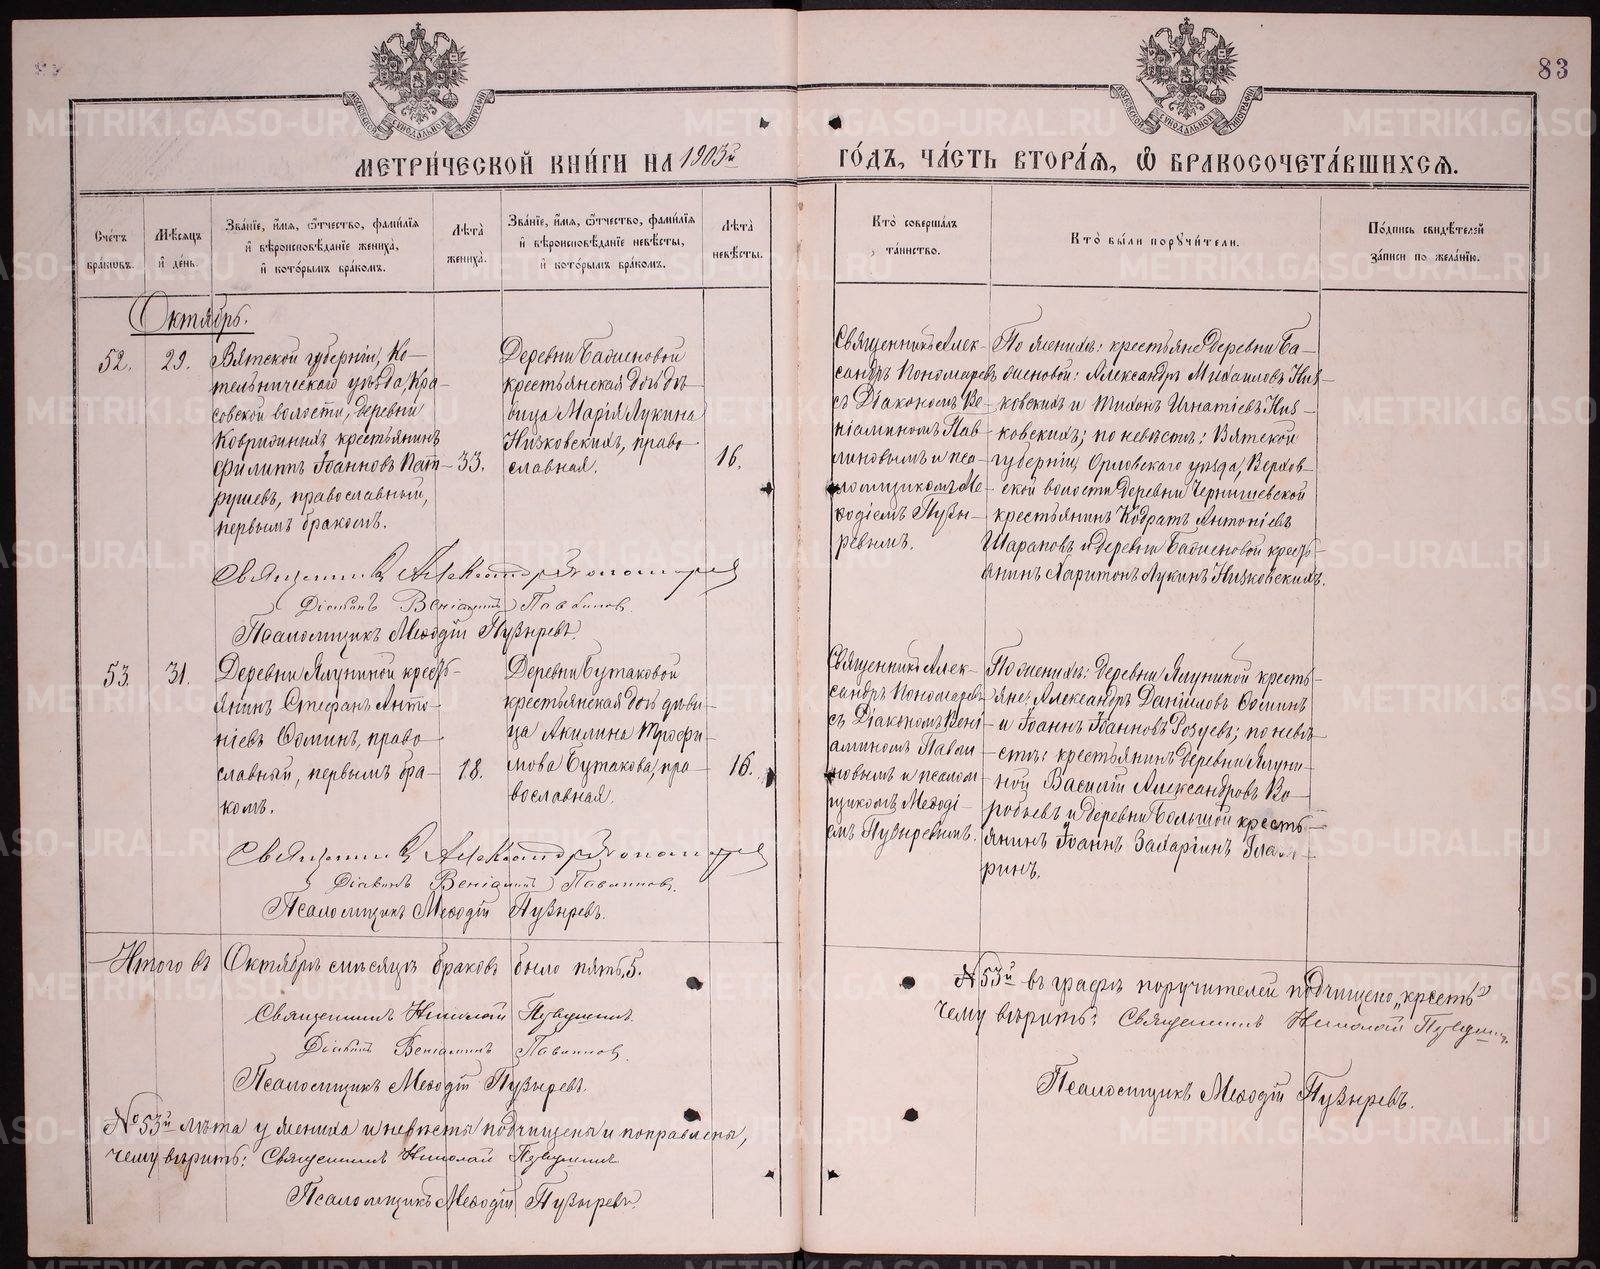 83
МОСКОВСКОЙ СѴНОДАЛЬНОЙ ТИПОГРАФІИ
МОСКОВСКОЙ СѴНОДАЛЬНОЙ ТИПОГРАФІИ
МЕТРИ́ЧЕСКОЙ КНИ́ГИ НА 1903й
ГО́ДЪ, ЧА́СТЬ ВТОРА́Ѧ, Ѿ БРАКОСОЧЕТА́ВШИХСѦ.
Сче́тъ бра́кѡвъ.
Мѣ́сяцъ и҆ де́нь.
Зва́нїе, и҆́мя, ѻ҆́тчество, фами́лїя и҆ вѣроисповѣ́данїе жениха̀, и҆ кото́рымъ бра́комъ.
Лѣ́та жениха̀.
Зва́нїе, и҆́мя, ѻ҆́тчество, фами́лїя и҆ вѣроисповѣ́данїе невѣ́сты, и҆ кото́рымъ бра́комъ.
Лѣ́та невѣ́сты.
Кто̀ соверша́лъ та́инство.
Кто̀ бы́ли порꙋчи́тели.
По́дпись свидѣ́телей за́писи по жела́нїю.
Октябрь.
52.
29.
Вятской губерніи, Ко-
тельническаго уѣзда, Кра-
совской волости, деревни
Ковригиныхъ крестьянинъ
Филиппъ Іоанновъ Пат-
рушевъ, православный,
первымъ бракомъ.
33.
Деревни
крестьянская дочь дѣ-
вица Марія Лукина
Низковскихъ, право-
славная.
16.
Священникъ Алек-
сандръ Пономаревъ
съ Діакономъ Ве-
ніаминомъ Пав-
линовымъ и пса-
ломщикомъ Ме-
ѳодіемъ Пузы-
ревымъ.
По женихѣ: крестьяне деревни
Александръ Михаиловъ Низ-
ковскихъ и Тихонъ Игнатіевъ Низ-
ковскихъ; по невѣстѣ: Вятской
губерніи, Орловскаго уѣзда, Верхов-
ской волости деревни Чернышевской
крестьянинъ Кодратъ Антоніевъ
Шараповъ и деревни кресть-
янинъ Харитонъ Лукинъ Низковскихъ.
Священникъ Александръ Пономаревъ
Діаконъ Веніаминъ Павлиновъ.
Псаломщикъ Меѳодій Пузыревъ.
53.
31.
Деревни Ялуниной кресть-
янинъ Стефанъ Анто-
ніевъ Ѳоминъ, право-
славный, первымъ бра-
комъ.
18.
Деревни Бутаковой
крестьянская дочь дѣви-
ца Акилина Трофи-
мова Бутакова, пра-
вославная.
16.
Священникъ Алек-
сандръ Пономаревъ
съ Діакономъ Вені-
аминомъ Павли-
новымъ и псалом-
щикомъ Меѳоді-
емъ Пузыревымъ.
По женихѣ: деревни Ялуниной кресть-
яне: Александръ Даніиловъ Ѳоминъ
и Іоаннъ Іоанновъ по невѣ-
стѣ: крестьянинъ деревни Ялуни-
ной Василій Александровъ Во-
робьевъ и деревни Большой кресть-
янинъ Іоаннъ Захаріинъ
Священникъ Александръ Пономаревъ
Діаконъ Веніаминъ Павлиновъ.
Псаломщикъ Меѳодій Пузыревъ.
Итого въ Октябрѣ мѣсяцѣ браковъ было пять, 5.
Священникъ Николай
Діаконъ Веніаминъ Павлиновъ.
Псаломщикъ Меѳодій Пузыревъ.
№ 53й лѣта у жениха и невѣсты подчищены и поправлены,
чему вѣрить: Священникъ Николай
Псаломщикъ Меѳодій Пузыревъ.
№ 53й въ графѣ поручителей подчищено „кресть"
чему вѣрить: Священникъ Николай
Псаломщикъ Меѳодій Пузыревъ.
METRIKI.GASO-URAL.RU